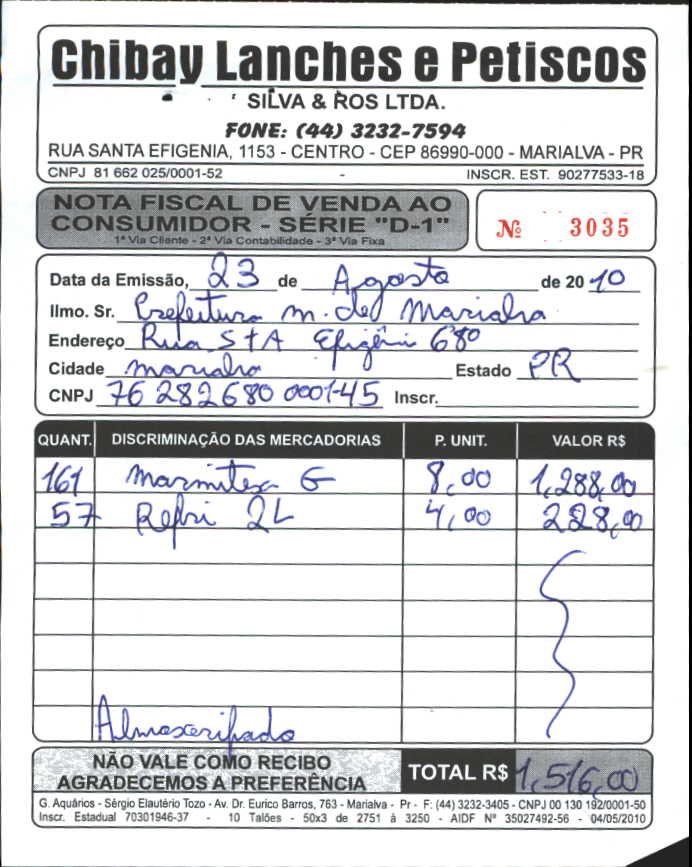 Chibay Lanches e Petiscos
SILVA & ROS LTDA.
FONE: (44) 3232-7594
RUA SANTA EFIGENIA, 1153 - CENTRO - CEP 86990-000 - MARIALVA - PR
CNPJ 81 662 025/0001-52 - INSCR. EST. 90277533-18
NOTA FISCAL DE VENDA AO
CONSUMIDOR - SÉRIE "D-1"
1ª Via Cliente - 2ª Via Contabilidade - 3ª Via Fixa
Nº 3035
Data da Emissão, 23 de Agosto de 2010
Ilmo. Sr. Prefeitura m. de Marialva
Endereço Rua StA Efigênia 680
Cidade marialva Estado PR
CNPJ 76 282680 0001-45 Inscr.
QUANT. DISCRIMINAÇÃO DAS MERCADORIAS P. UNIT. VALOR R$
161 Marmitex G 8,00 1,288,00
57 Refri 2L 4,00 228,00
Almoxarifado
NÃO VALE COMO RECIBO
AGRADECEMOS A PREFERÊNCIA
TOTAL R$ 1,516,00
G. Aquários - Sérgio Elautério Tozo - Av. Dr. Eurico Barros, 763 - Marialva - Pr - F: (44) 3232-3405 - CNPJ 00 130 192/0001-50
Inscr. Estadual 70301946-37 - 10 Talões - 50x3 de 2751 à 3250 - AIDF Nº 35027492-56 - 04/05/2010